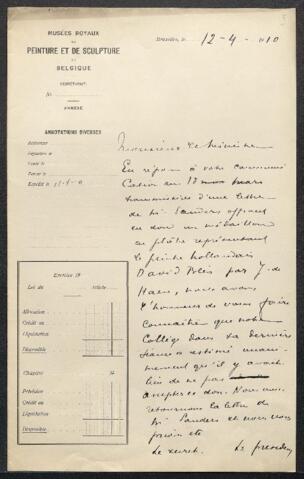 MUSÉES ROYAUX
DE
PEINTURE ET DE SCULPTURE
DE
BELGIQUE
N°
ANNEXE
ANNOTATIONS DIVERSES
Bruxelles, le 12-4-1910
Monsieur le Ministre
En réponse à votre communi
cation du 18 mars
transmissive d'une lettre
de Mr Sanders offrant
en don un médaillon
en plâtre représentant
le peintre hollandais
David Bles par J. de
Haen, nous avons
l'honneur de vous faire
connaître que notre
Collège dans sa dernière
séance estimé unani-
mement qu'il y avait
lieu de ne pas
accepter ce don. Nous vous
retournons la lettre de
Mr Sanders et nous vous
prions etc
Le secrét. Le président
Exercice 19
Loi du Article
Allocation
Crédit ou
Liquidation
Disponible
Chapitre
Prévision
Crédit ou
Liquidation
Disponible